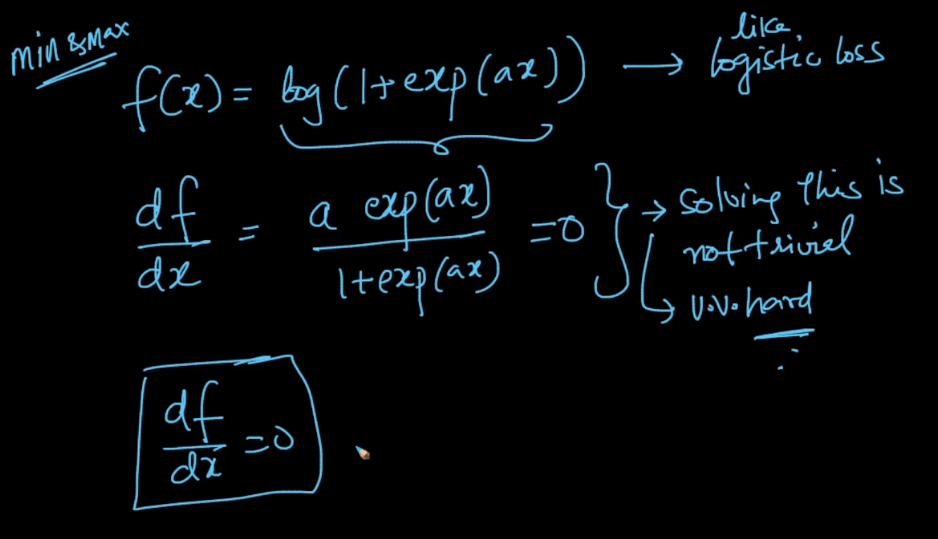 min & max
f(x) = log(1+exp(ax)) → like logistic loss
df/dx = a exp(ax) / 1+exp(ax) = 0 } → solving this is
not trivial
→ v.v. hard
df/dx = 0